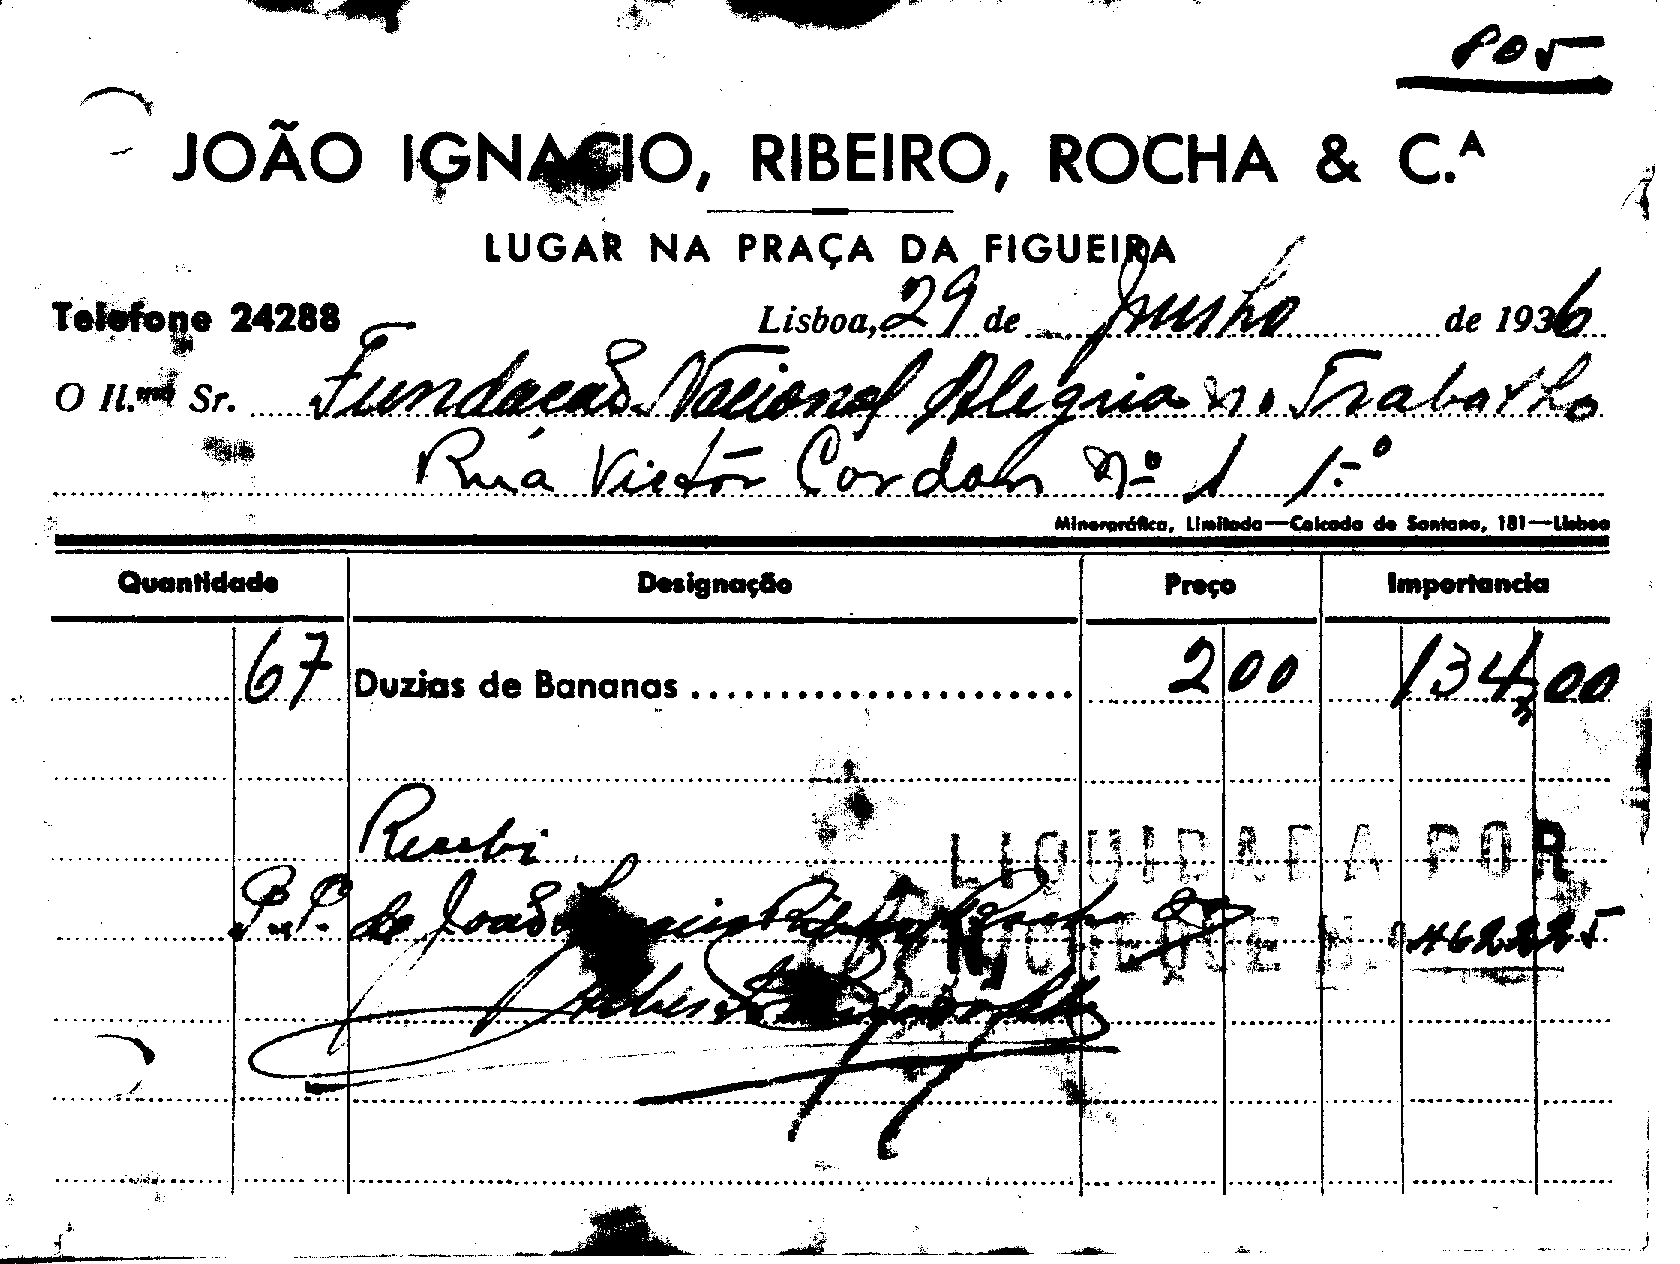 805
JOÃO IGNACIO, RIBEIRO, ROCHA & C.A
LUGAR NA PRAÇA DA FIGUEIRA
Telefone 24288 Lisboa, 29 de Junho de 1936
O Il.mo Sr. Fundação Nacional Alegria no Trabalho
Rua Victór Cordon Nº 1 1.º
Minerográfica, Limitada—Calcada de Santana, 181—Lisboa
Quantidade Designação Preço Importancia
67 Duzias de Bananas 2 00 134,00
Recebi
LIQUIDADA POR
P.P. de João Ignacio Ribeiro Rocha & Cª
CHEQUE N.º 462225